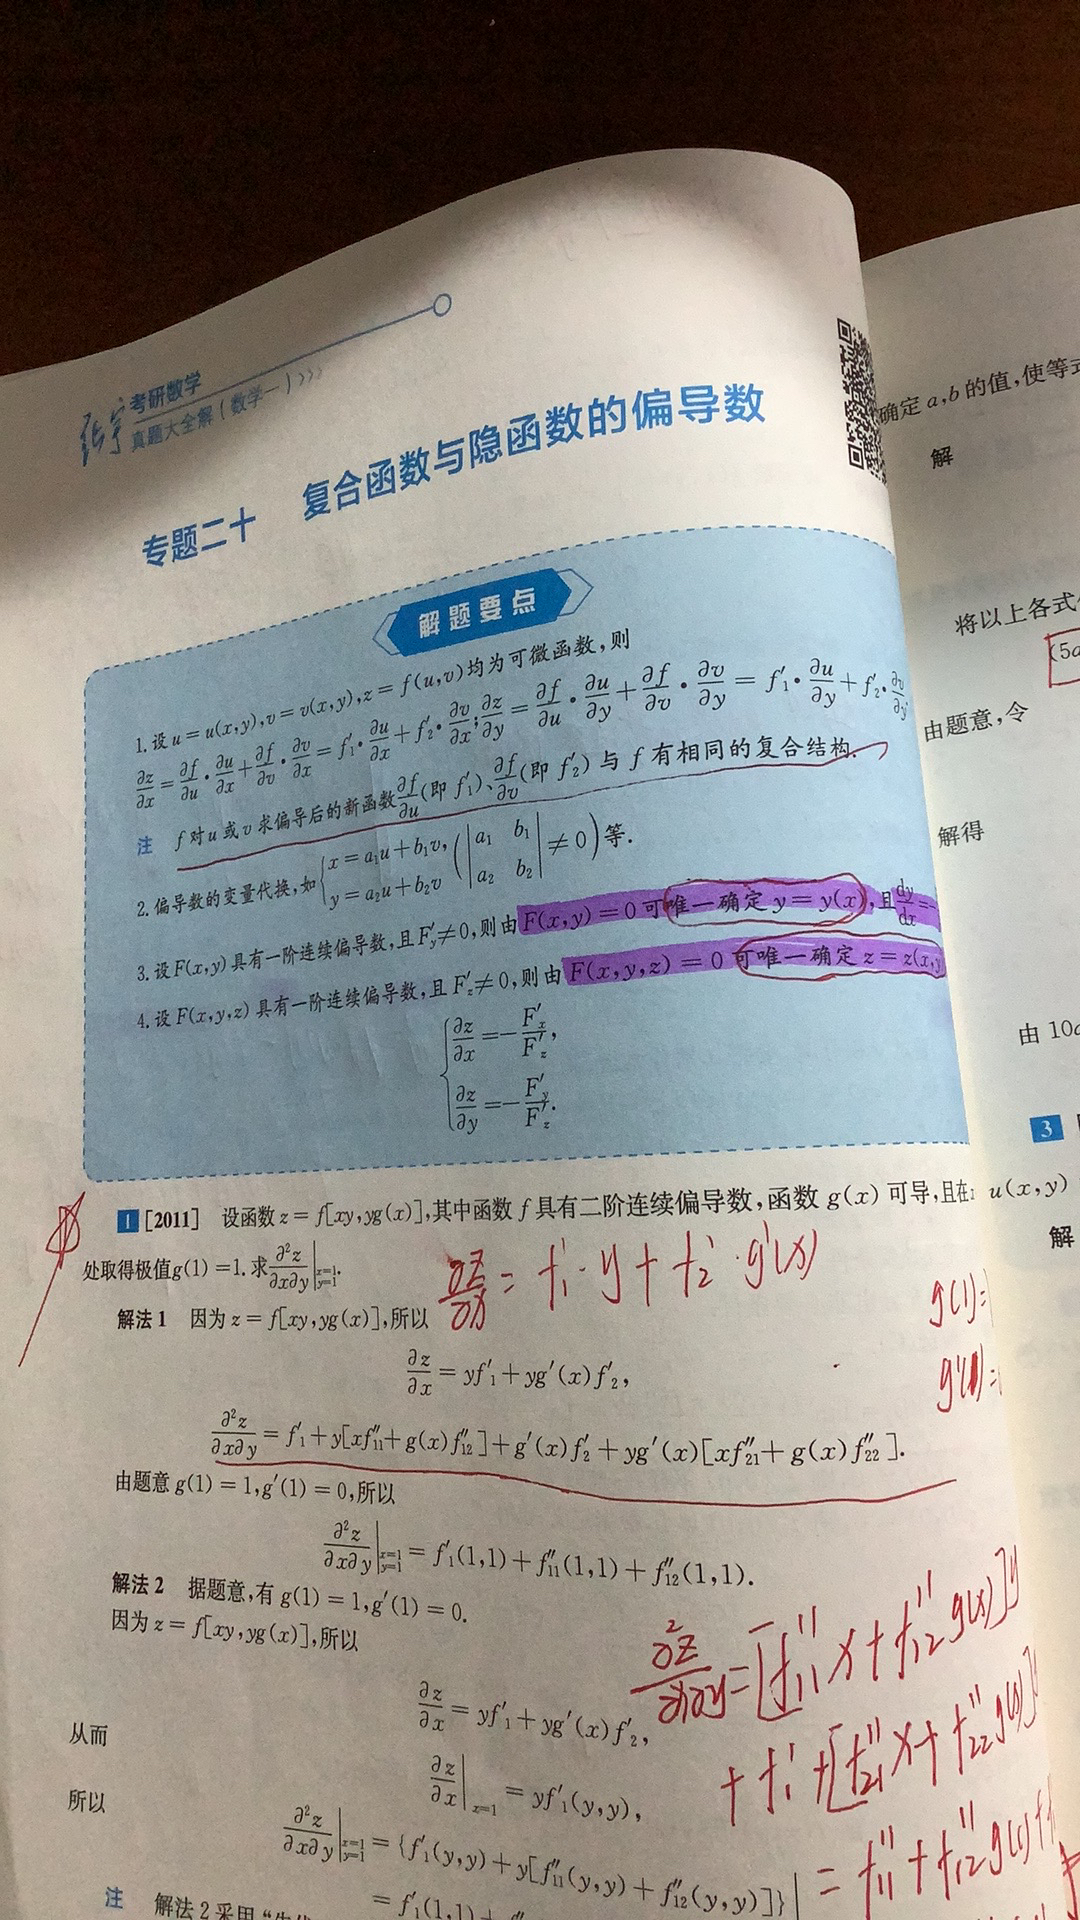 张宇 考研数学
真题大全解(数学一)>>>
专题二十 复合函数与隐函数的偏导数
解题要点
1.设u=u(x,y),v=v(x,y),z=f(u,v)均为可微函数,则
∂z/∂x=∂f/∂u·∂u/∂x+∂f/∂v·∂v/∂x=f′₁·∂u/∂x+f′₂·∂v/∂x;∂z/∂y=∂f/∂u·∂u/∂y+∂f/∂v·∂v/∂y=f′₁·∂u/∂y+f′₂·∂v/∂y
注 f对u或v求偏导后的新函数∂f/∂u(即f′₁)、∂f/∂v(即f′₂)与f有相同的复合结构.
2.偏导数的变量代换,如{x=a₁u+b₁v, y=a₂u+b₂v (|a₁ b₁; a₂ b₂|≠0)等.
3.设F(x,y)具有一阶连续偏导数,且F′y≠0,则由F(x,y)=0可唯一确定y=y(x),且dy/dx=-
4.设F(x,y,z)具有一阶连续偏导数,且F′z≠0,则由F(x,y,z)=0可唯一确定z=z(x,y
∂z/∂x=-F′x/F′z,
∂z/∂y=-F′y/F′z.
1 [2011] 设函数z=f[xy,yg(x)],其中函数f具有二阶连续偏导数,函数g(x)可导,且在
处取得极值g(1)=1.求∂²z/∂x∂y|x=1 y=1.
∂z/∂x=f′₁·y+f′₂·g′(x)
解法1 因为z=f[xy,yg(x)],所以
g(1)=
∂z/∂x=yf′₁+yg′(x)f′₂,
g′(1)=
∂²z/∂x∂y=f′₁+y[xf″₁₁+g(x)f″₁₂]+g′(x)f′₂+yg′(x)[xf″₂₁+g(x)f″₂₂].
由题意g(1)=1,g′(1)=0,所以
∂²z/∂x∂y|x=1 y=1=f′₁(1,1)+f″₁₁(1,1)+f″₁₂(1,1).
解法2 据题意,有g(1)=1,g′(1)=0.
因为z=f[xy,yg(x)],所以
∂²z/∂x∂y=[f″₁₁x+f″₁₂g(x)]y
∂z/∂x=yf′₁+yg′(x)f′₂,
从而
+f′₁+[f″₂₁x+f″₂₂g(x)]
∂z/∂x|x=1=yf′₁(y,y),
所以
∂²z/∂x∂y|x=1 y=1={f′₁(y,y)+y[f″₁₁(y,y)+f″₁₂(y,y)]}|
=f″₁₁+f″₁₂g(x)+
=f′₁(1,1)+f″
注 解法2采用“先
确定a,b的值,使等式
解
将以上各式
(5a
由题意,令
解得
由10a
3
u(x,y)
解